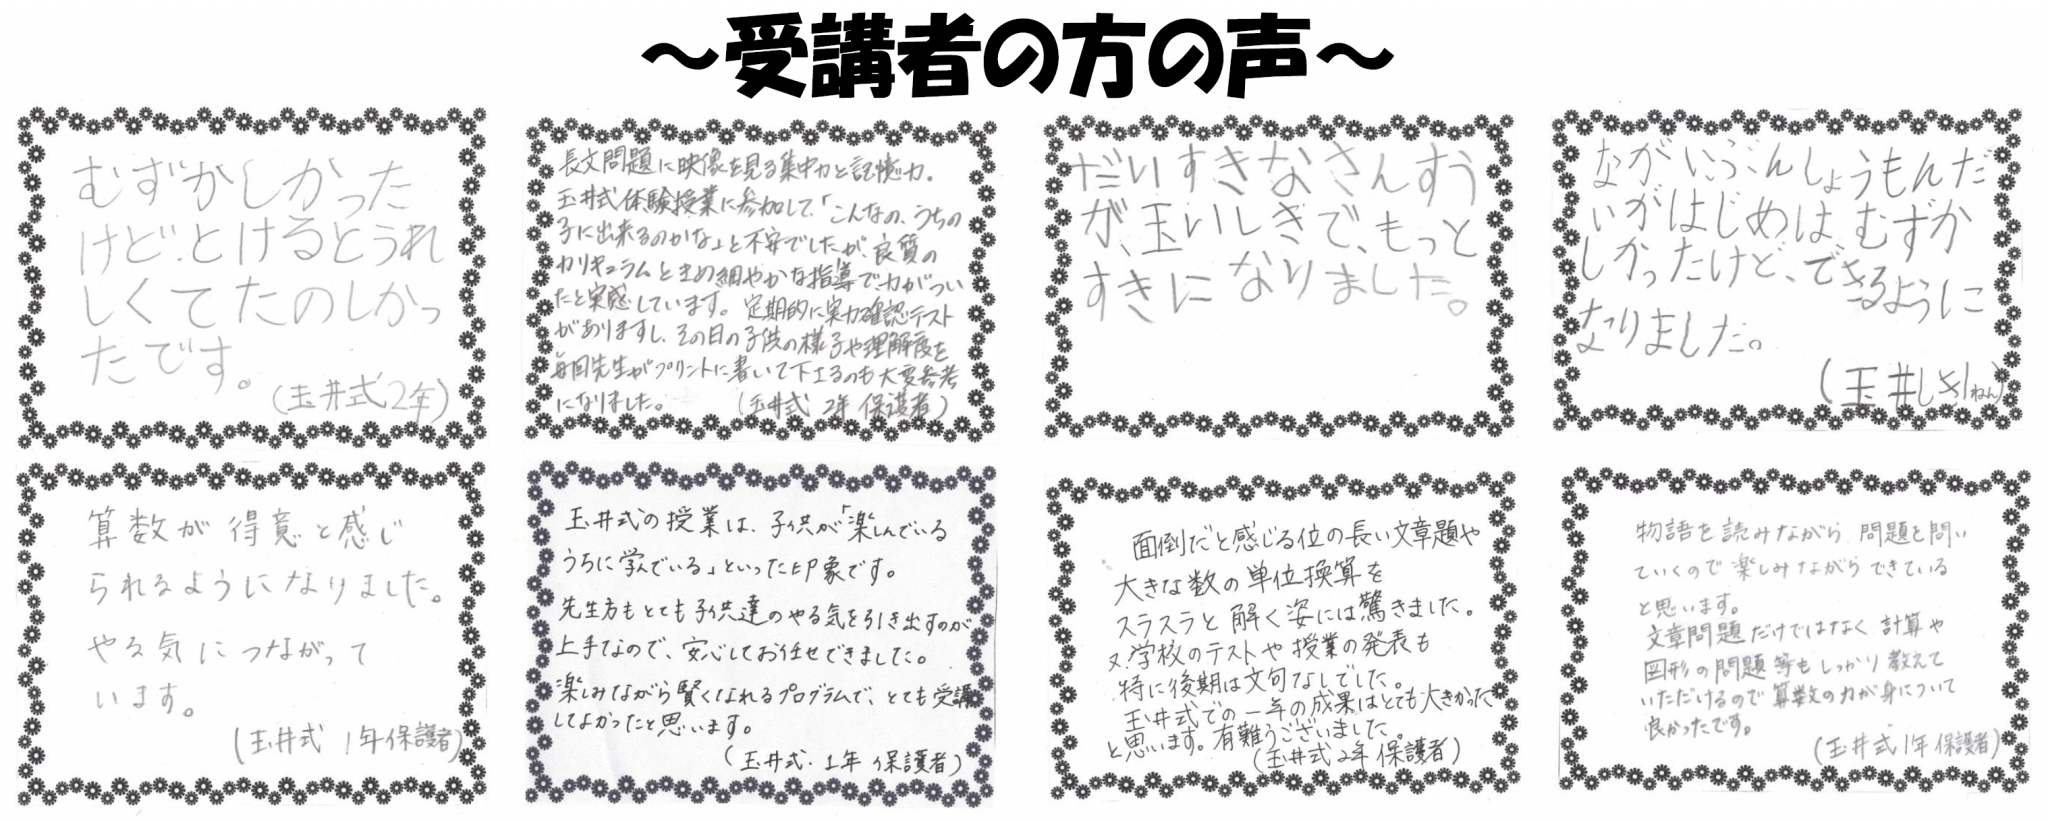 ～受講者の方の声～
むずかしかった
けど、とけるとうれ
しくてたのしかっ
たです。
(玉井式2年)
長文問題に映像を見る集中力と記憶力。
玉井式体験授業に参加して、「こんなの、うちの
子に出来るのかな」と不安でしたが、良質の
カリキュラムときめ細やかな指導で、力がつい
たと実感しています。定期的に実力確認テスト
がありますし、その日の子供の様子や理解度を
毎回先生がプリントに書いて下さるのも大変参考
になりました。
(玉井式 2年 保護者)
だいすきなさんすう
が、玉いしきで、もっと
すきになりました。
ながいぶんしょうもんだ
いがはじめは、むずか
しかったけど、できるように
なりました。
(玉井しき1ねん)
算数が得意と感じ
られるようになりました。
やる気につながって
います。
(玉井式 1年保護者)
玉井式の授業は、子供が「楽しんでいる
うちに学んでいる」といった印象です。
先生方もとても子供達のやる気を引き出すのが
上手なので、安心してお任せできました。
楽しみながら賢くなれるプログラムで、とても受講
してよかったと思います。
(玉井式・1年 保護者)
面倒だと感じる位の長い文章題や
大きな数の単位換算を
スラスラと解く姿には驚きました。
又、学校のテストや授業の発表も
特に後期は文句なしでした。
玉井式での一年の成果はとても大きかった
と思います。有難うございました。
(玉井式2年保護者)
物語を読みながら問題を問い
ていくので楽しみながらできている
と思います。
文章問題だけではなく計算や
図形の問題等もしっかり教えて
いただけるので算数の力が身について
良かったです。
(玉井式1年保護者)